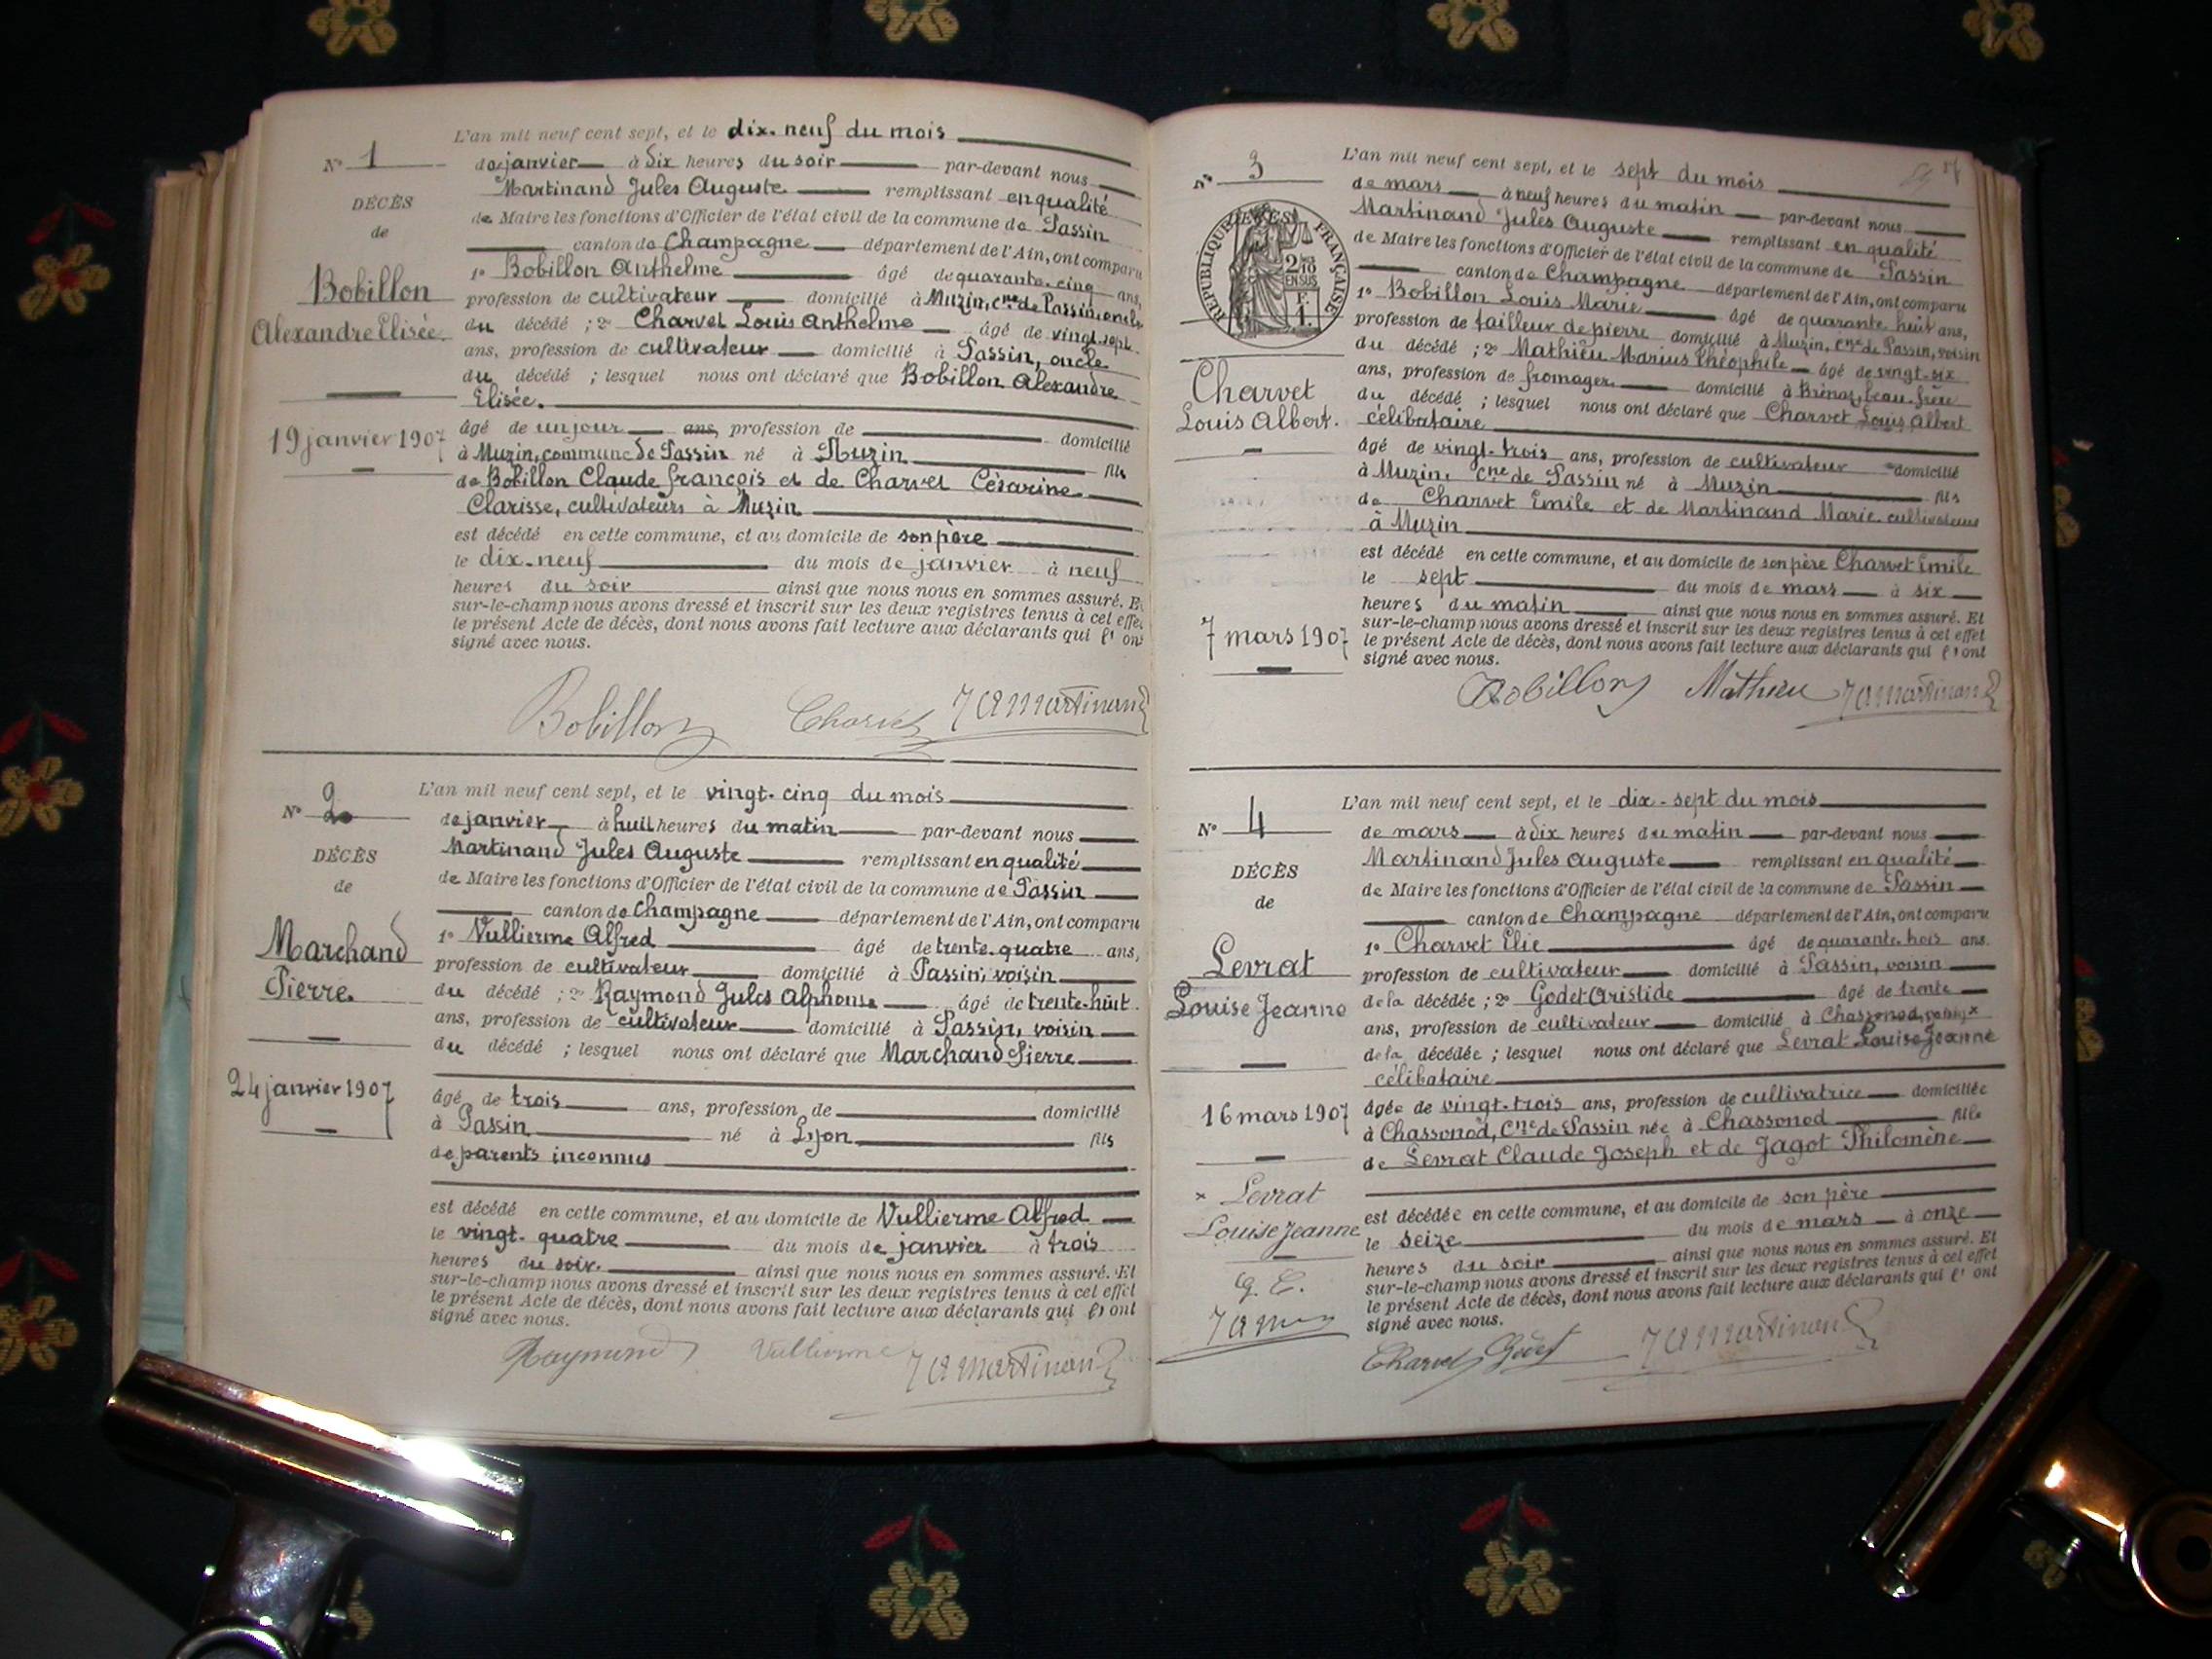 L'an mil neuf cent sept, et le dix-neuf du mois
N° 1
de janvier à dix heures du soir par-devant nous
Martinand Jules Auguste remplissant en qualité
DÉCÈS
de Maire les fonctions d'Officier de l'état civil de la commune de Passin
de
canton de Champagne département de l'Ain, ont comparu
1° Bobillon Anthelme âgé de quarante-cinq ans,
Bobillon
profession de cultivateur domicilié à Muzin, cne de Passin, oncle
Alexandre Elisée.
du décédé ; 2° Charvet Louis Anthelme âgé de vingt-sept
ans, profession de cultivateur domicilié à Passin, oncle
du décédé ; lesquel nous ont déclaré que Bobillon Alexandre
Elisée.
19 janvier 1907
âgé de un jour ans, profession de domicilié
à Muzin, commune de Passin né à Muzin fils
de Bobillon Claude françois et de Charvet Césarine
Clarisse, cultivateurs à Muzin
est décédé en cette commune, et au domicile de son père
le dix-neuf du mois de janvier à neuf
heures du soir ainsi que nous nous en sommes assuré. Et
sur-le-champ nous avons dressé et inscrit sur les deux registres tenus à cet effet
le présent Acte de décès, dont nous avons fait lecture aux déclarants qui l'ont
signé avec nous.
Bobillon Charvet JAMartinand
L'an mil neuf cent sept, et le vingt-cinq du mois
N° 2
de janvier à huit heures du matin par-devant nous
Martinand Jules Auguste remplissant en qualité
DÉCÈS
de Maire les fonctions d'Officier de l'état civil de la commune de Passin
de
canton de Champagne département de l'Ain, ont comparu
1° Vullierme Alfred âgé de trente-quatre ans,
Marchand
profession de cultivateur domicilié à Passin, voisin
Pierre.
du décédé ; 2° Raymond Jules Alphonse âgé de trente-huit
ans, profession de cultivateur domicilié à Passin, voisin
du décédé ; lesquel nous ont déclaré que Marchand Pierre
24 janvier 1907
âgé de trois ans, profession de domicilié
à Passin né à Lyon fils
de parents inconnus
est décédé en cette commune, et au domicile de Vullierme Alfred
le vingt-quatre du mois de janvier à trois
heures du soir. ainsi que nous nous en sommes assuré. Et
sur-le-champ nous avons dressé et inscrit sur les deux registres tenus à cet effet
le présent Acte de décès, dont nous avons fait lecture aux déclarants qui l'ont
signé avec nous.
Raymond Vullierme JAMartinand
L'an mil neuf cent sept, et le sept du mois
N° 3
de mars à neuf heures du matin par-devant nous
Martinand Jules Auguste remplissant en qualité
RÉPUBLIQUE FRANÇAISE
2/10 EN SUS
de Maire les fonctions d'Officier de l'état civil de la commune de Passin
canton de Champagne département de l'Ain, ont comparu
1° Bobillon Louis Marie âgé de quarante huit ans,
profession de tailleur de pierre domicilié à Muzin, cne de Passin, voisin
du décédé ; 2° Mathieu Marius Théophile âgé de vingt-six
ans, profession de fromager domicilié à Brénaz, beau-frère
Charvet
Louis Albert.
du décédé ; lesquel nous ont déclaré que Charvet Louis Albert
célibataire
âgé de vingt-trois ans, profession de cultivateur domicilié
à Muzin, cne de Passin né à Muzin fils
de Charvet Emile et de Martinand Marie cultivateurs
à Muzin
est décédé en cette commune, et au domicile de son père Charvet Emile
le sept du mois de mars à six
heures du matin ainsi que nous nous en sommes assuré. Et
7 mars 1907
sur-le-champ nous avons dressé et inscrit sur les deux registres tenus à cet effet
le présent Acte de décès, dont nous avons fait lecture aux déclarants qui l'ont
signé avec nous.
Bobillon Mathieu JAMartinand
L'an mil neuf cent sept, et le dix-sept du mois
N° 4
de mars à dix heures du matin par-devant nous
Martinand Jules Auguste remplissant en qualité
DÉCÈS
de Maire les fonctions d'Officier de l'état civil de la commune de Passin
de
canton de Champagne département de l'Ain, ont comparu
1° Charvet Elie âgé de quarante-trois ans.
Levrat
profession de cultivateur domicilié à Passin, voisin
Louise Jeanne
de la décédée ; 2° Godet Aristide âgé de trente
ans, profession de cultivateur domicilié à Chassonod, voisin x
de la décédée ; lesquel nous ont déclaré que Levrat Louise Jeanne
célibataire
16 mars 1907
âgée de vingt-trois ans, profession de cultivatrice domiciliée
à Chassonod, Cne de Passin née à Chassonod fille
de Levrat Claude Joseph et de Jagot Philomène
x Levrat
Louise Jeanne
est décédée en cette commune, et au domicile de son père
le seize du mois de mars à onze
heures du soir ainsi que nous nous en sommes assuré. Et
G. C.
sur-le-champ nous avons dressé et inscrit sur les deux registres tenus à cet effet
le présent Acte de décès, dont nous avons fait lecture aux déclarants qui l'ont
signé avec nous.
Charvet Godet JAMartinand